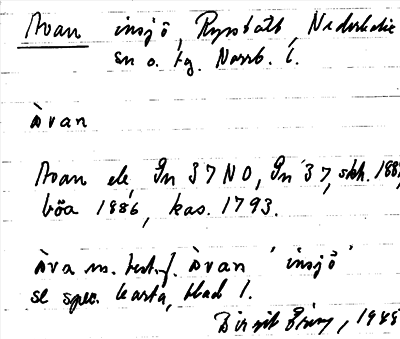 Avan insjö, Ryssbält, Nederkalix
sn o. tg. Norrb. l.
àvan
Avan ek, Gn 37 NO, Gn 37, skk. 1881,
böa 1886, kas. 1793.
àva m. best. f. àvan 'insjö'
se spec. karta, blad 1.
Birgit 1945